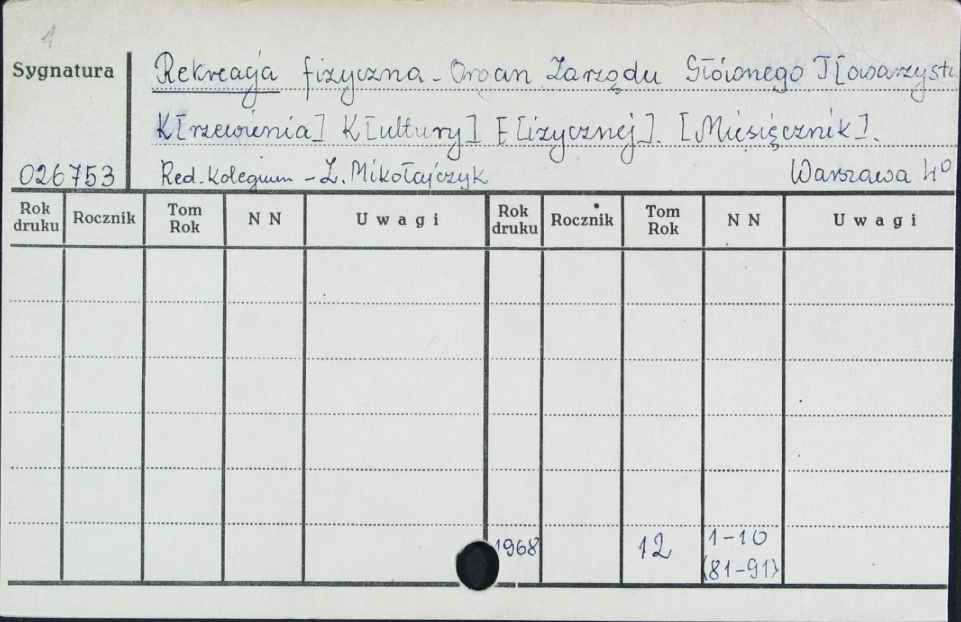 1
Sygnatura
Rekreacja fizyczna - Organ Zarządu Głównego T[owarzystw
K[rzewienia] K[ultury] F[izycznej]. [Miesięcznik].
026753 Red. Kolegium - Z. Mikołajczyk Warszawa 4⁰
Rok druku Rocznik Tom Rok N N Uwagi Rok druku Rocznik Tom Rok N N Uwagi
1968 12 1-10
(81-91)